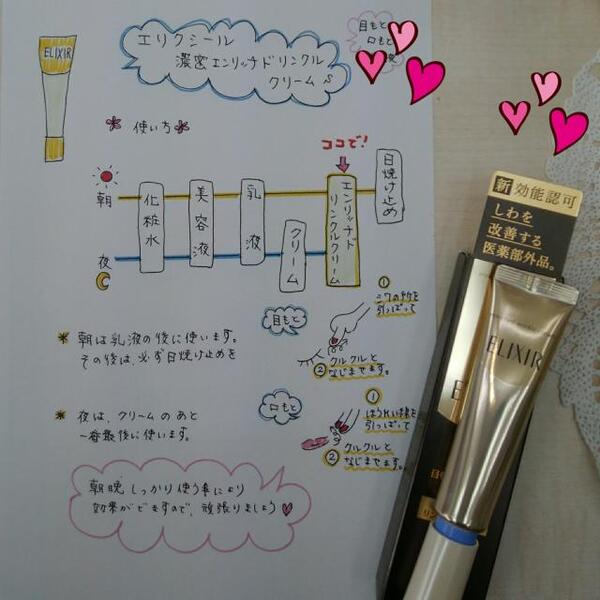 ELIXIR
エリクシール
濃密エンリッチドリンクル
クリーム
目もと
口もと
使い方
ココで!
朝
化粧水
美容液
乳液
クリーム
エンリッチド
リンクルクリーム
日焼け止め
夜
目もと
①
引っぱって
② クルクルと
なじませます。
朝は乳液の後に使います。
その後は、必ず日焼け止めを
口もと
①
引っぱって
② クルクルと
なじませます。
夜は、クリームのあと
一番最後に使います。
朝晩しっかり使う事により
効果がでますので、頑張りましょう
新 効能認可
しわを
改善する
医薬部外品。
ELIXIR